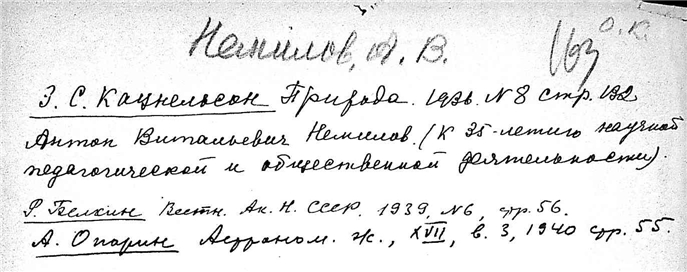 Немилов, А. В.
О.К.
З. С. Кацнельсон Природа. 1936. N 8 стр. 132
Антон Витальевич Немилов. (К 35-летию научной
педагогической и общественной деятельности).
Р. Белкин Вестн. Ак. Н. СССР. 1939, N6, стр. 56.
А. Опарин Астроном. ж., XVII, в. 3, 1940 стр. 55.